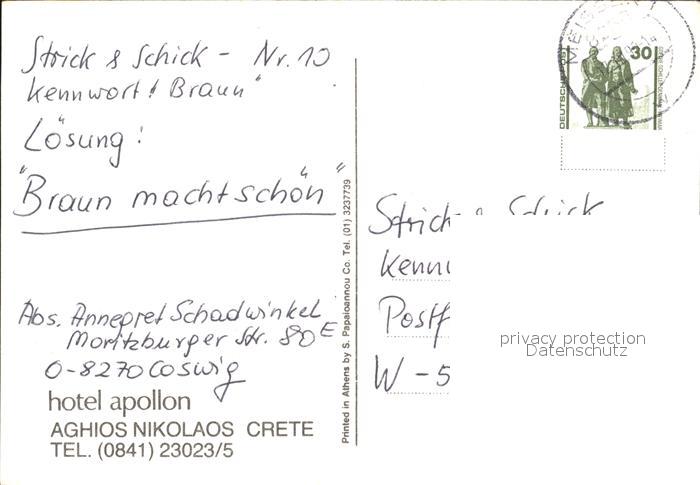 Strick & Schick - Nr. 10
Kennwort! Braun"
Lösung:
"Braun macht schön"
Abs. Annegret Schadwinkel
Moritzburger Str. 80E
O-8270 Coswig
hotel apollon
AGHIOS NIKOLAOS CRETE
TEL. (0841) 23023/5
Printed in Athens by S. Papaioannou Co. Tel. (01) 3237739
DEUTSCHE POST
30
Strick & Schick
Kenn
Postf
W - 5
privacy protection
Datenschutz